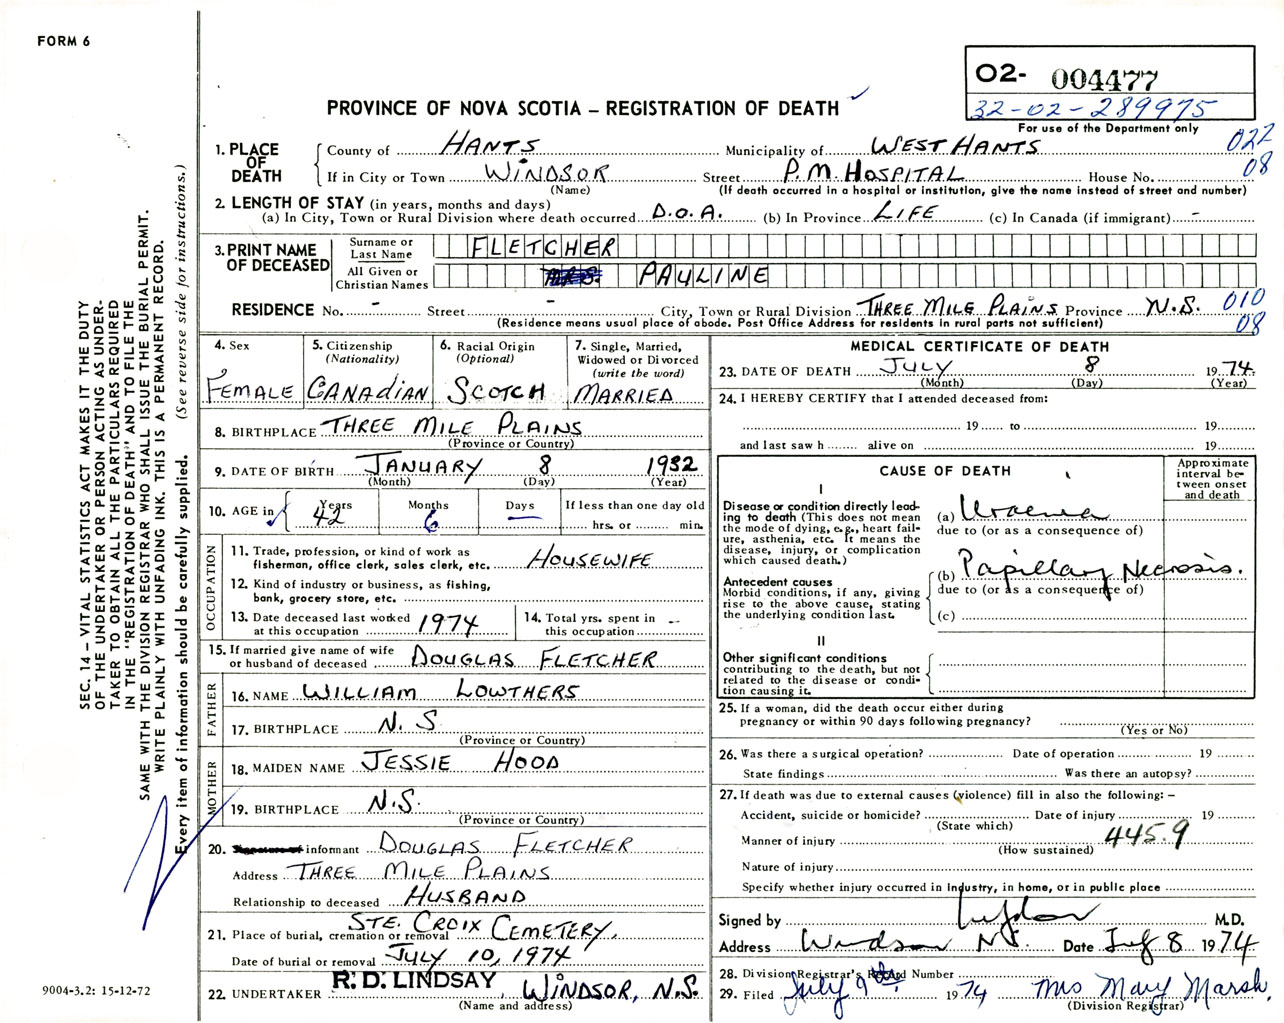 FORM 6
O2- 004477
32-02-289975
For use of the Department only
PROVINCE OF NOVA SCOTIA – REGISTRATION OF DEATH
1. PLACE OF DEATH
County of HANTS Municipality of WEST HANTS 022
If in City or Town WINDSOR Street P.M. HOSPITAL House No. 08
(Name) (If death occurred in a hospital or institution, give the name instead of street and number)
2. LENGTH OF STAY (in years, months and days)
(a) In City, Town or Rural Division where death occurred D.O.A. (b) In Province LIFE (c) In Canada (if immigrant) -
3. PRINT NAME OF DECEASED
Surname or Last Name FLETCHER
All Given or Christian Names MRS. PAULINE
RESIDENCE No. - Street - City, Town or Rural Division THREE MILE PLAINS Province N.S. 010
(Residence means usual place of abode. Post Office Address for residents in rural parts not sufficient) 08
4. Sex FEMALE
5. Citizenship (Nationality) CANADIAN
6. Racial Origin (Optional) SCOTCH
7. Single, Married, Widowed or Divorced (write the word) MARRIED
8. BIRTHPLACE THREE MILE PLAINS
(Province or Country)
9. DATE OF BIRTH JANUARY 8 1932
(Month) (Day) (Year)
10. AGE in Years 42 Months 6 Days — If less than one day old
hrs. or min.
OCCUPATION
11. Trade, profession, or kind of work as fisherman, office clerk, sales clerk, etc. HOUSEWIFE
12. Kind of industry or business, as fishing, bank, grocery store, etc.
13. Date deceased last worked at this occupation 1974
14. Total yrs. spent in this occupation --
15. If married give name of wife or husband of deceased DOUGLAS FLETCHER
FATHER
16. NAME WILLIAM LOWTHERS
17. BIRTHPLACE N.S
(Province or Country)
MOTHER
18. MAIDEN NAME JESSIE HOOD
19. BIRTHPLACE N.S.
(Province or Country)
20. informant DOUGLAS FLETCHER
Address THREE MILE PLAINS
Relationship to deceased HUSBAND
21. Place of burial, cremation or removal STE. CROIX CEMETERY,
Date of burial or removal JULY 10, 1974
22. UNDERTAKER R. D. LINDSAY, WINDSOR, N.S.
(Name and address)
MEDICAL CERTIFICATE OF DEATH
23. DATE OF DEATH JULY 8 1974.
(Month) (Day) (Year)
24. I HEREBY CERTIFY that I attended deceased from:
19 to 19
and last saw h alive on 19
CAUSE OF DEATH
Approximate interval between onset and death
I
Disease or condition directly leading to death (This does not mean the mode of dying, e.g., heart failure, asthenia, etc. It means the disease, injury, or complication which caused death.)
(a) Uraemia
due to (or as a consequence of)
Antecedent causes
Morbid conditions, if any, giving rise to the above cause, stating the underlying condition last.
(b) Papillary Necrosis.
due to (or as a consequence of)
(c)
II
Other significant conditions
contributing to the death, but not related to the disease or condition causing it.
25. If a woman, did the death occur either during pregnancy or within 90 days following pregnancy?
(Yes or No)
26. Was there a surgical operation? Date of operation 19
State findings Was there an autopsy?
27. If death was due to external causes (violence) fill in also the following: –
Accident, suicide or homicide? Date of injury 19
(State which)
Manner of injury 445.9
(How sustained)
Nature of injury
Specify whether injury occurred in industry, in home, or in public place
Signed by M.D.
Address Windsor NS. Date July 8 1974
28. Division Registrar's Record Number
29. Filed July 9th. 1974 Mrs Mary Marsh.
(Division Registrar)
SEC. 14 – VITAL STATISTICS ACT MAKES IT THE DUTY
OF THE UNDERTAKER OR PERSON ACTING AS UNDER-
TAKER TO OBTAIN ALL THE PARTICULARS REQUIRED
IN THE "REGISTRATION OF DEATH" AND TO FILE THE
SAME WITH THE DIVISION REGISTRAR WHO SHALL ISSUE THE BURIAL PERMIT.
WRITE PLAINLY WITH UNFADING INK. THIS IS A PERMANENT RECORD.
Every item of information should be carefully supplied. (See reverse side for instructions.)
9004-3.2: 15-12-72